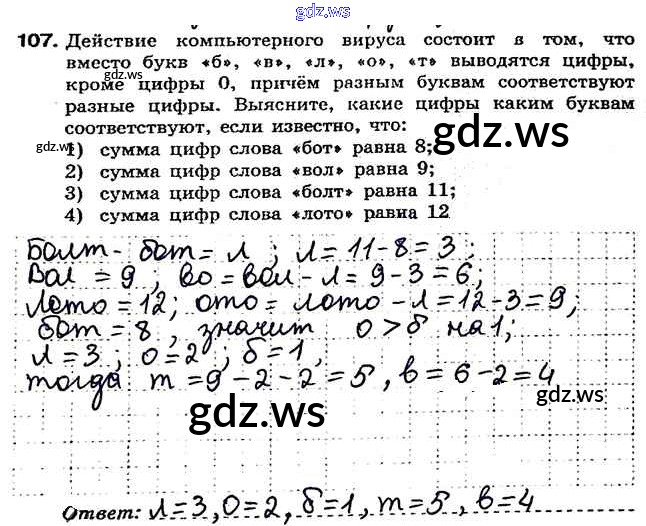 gdz.ws
107. Действие компьютерного вируса состоит в том, что
вместо букв «б», «в», «л», «о», «т» выводятся цифры,
gdz.ws
кроме цифры 0, причём разным буквам соответствуют
разные цифры. Выясните, какие цифры каким буквам
соответствуют, если известно, что:
gdz.ws
gdz.ws
1) сумма цифр слова «бот» равна 8;
2) сумма цифр слова «вол» равна 9;
3) сумма цифр слова «болт» равна 11;
4) сумма цифр слова «лото» равна 12
gdz.ws
Болт - бот = л ; л = 11-8=3 ;
Вол = 9 ; во = вол - л = 9-3=6;
Лото = 12; ото = лото - л = 12-3=9;
бот = 8 , значит о > б на 1;
л = 3 , о = 2 ; б = 1 ,
тогда т = 9-2-2=5 , в = 6-2=4
gdz.ws
gdz.ws
Ответ: л=3, о=2, б=1, т=5, в=4
gdz.ws
gdz.ws